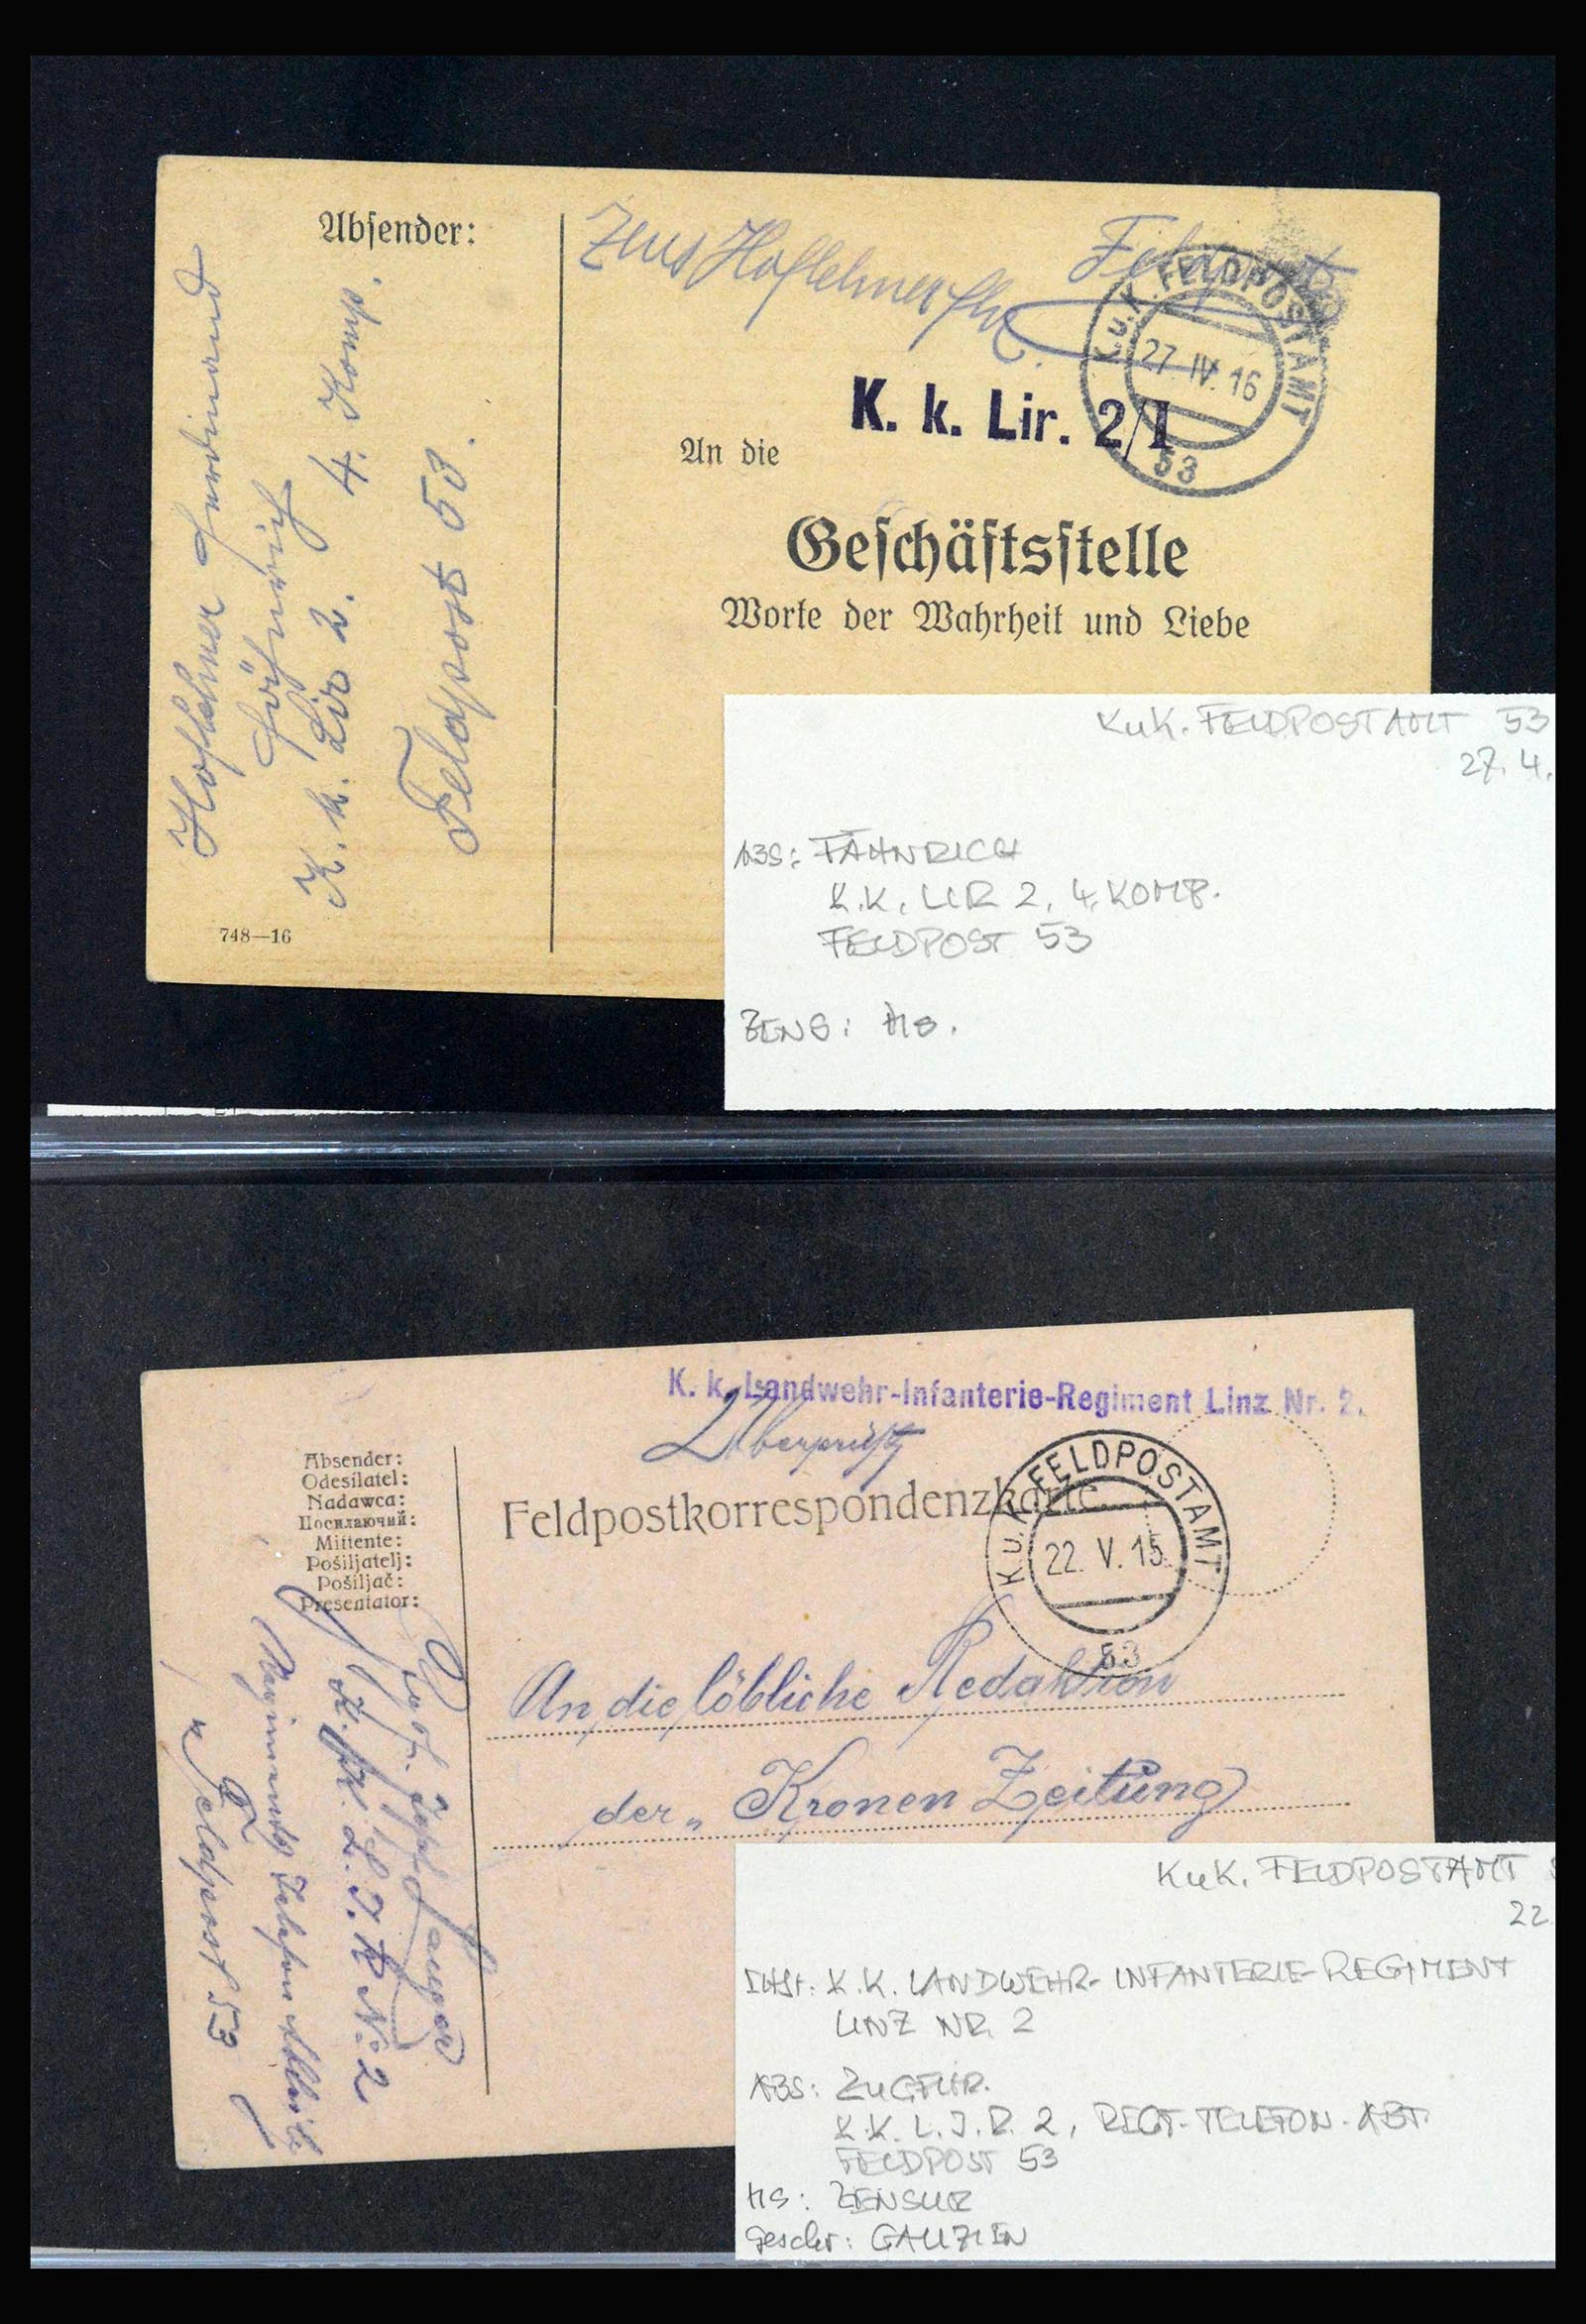 Absender:
Hoflehner Ferdinand
Fähnrich
K. k. Lir 2. 4. Komp.
Feldpost 53.
748—16
Zens Hoflehner Fhr.
Feldpost
K. u. K. FELDPOSTAMT
27. IV. 16
53
K. k. Lir. 2/I
An die
Geschäftsstelle
Worte der Wahrheit und Liebe
KuK. FELDPOSTAMT 53
27. 4.
ABS: FÄHNRICH
K.K. LIR 2, 4. KOMP.
FELDPOST 53
ZENS: HS.
K. k. Landwehr-Infanterie-Regiment Linz Nr. 2.
Überprüft
Absender:
Odesílatel:
Nadawca:
Посилаючий:
Mittente:
Pošiljatelj:
Pošiljač:
Presentator:
Feldpostkorrespondenzkarte.
K. u. K. FELDPOSTAMT
22. V. 15
53
Langer
K. k. L. I. R No 2
Regiments Telefon
Feldpost 53
An die löbliche Redaktion
der „ Kronen Zeitung
KuK. FELDPOSTAMT
22.
K.K. LANDWEHR-INFANTERIE-REGIMENT
LINZ NR. 2
ABS: ZUGFHR.
K.K. L.I.R. 2, REGT-TELEFON-ABT.
FELDPOST 53
HS: ZENSUR
geschr: GALIZIEN